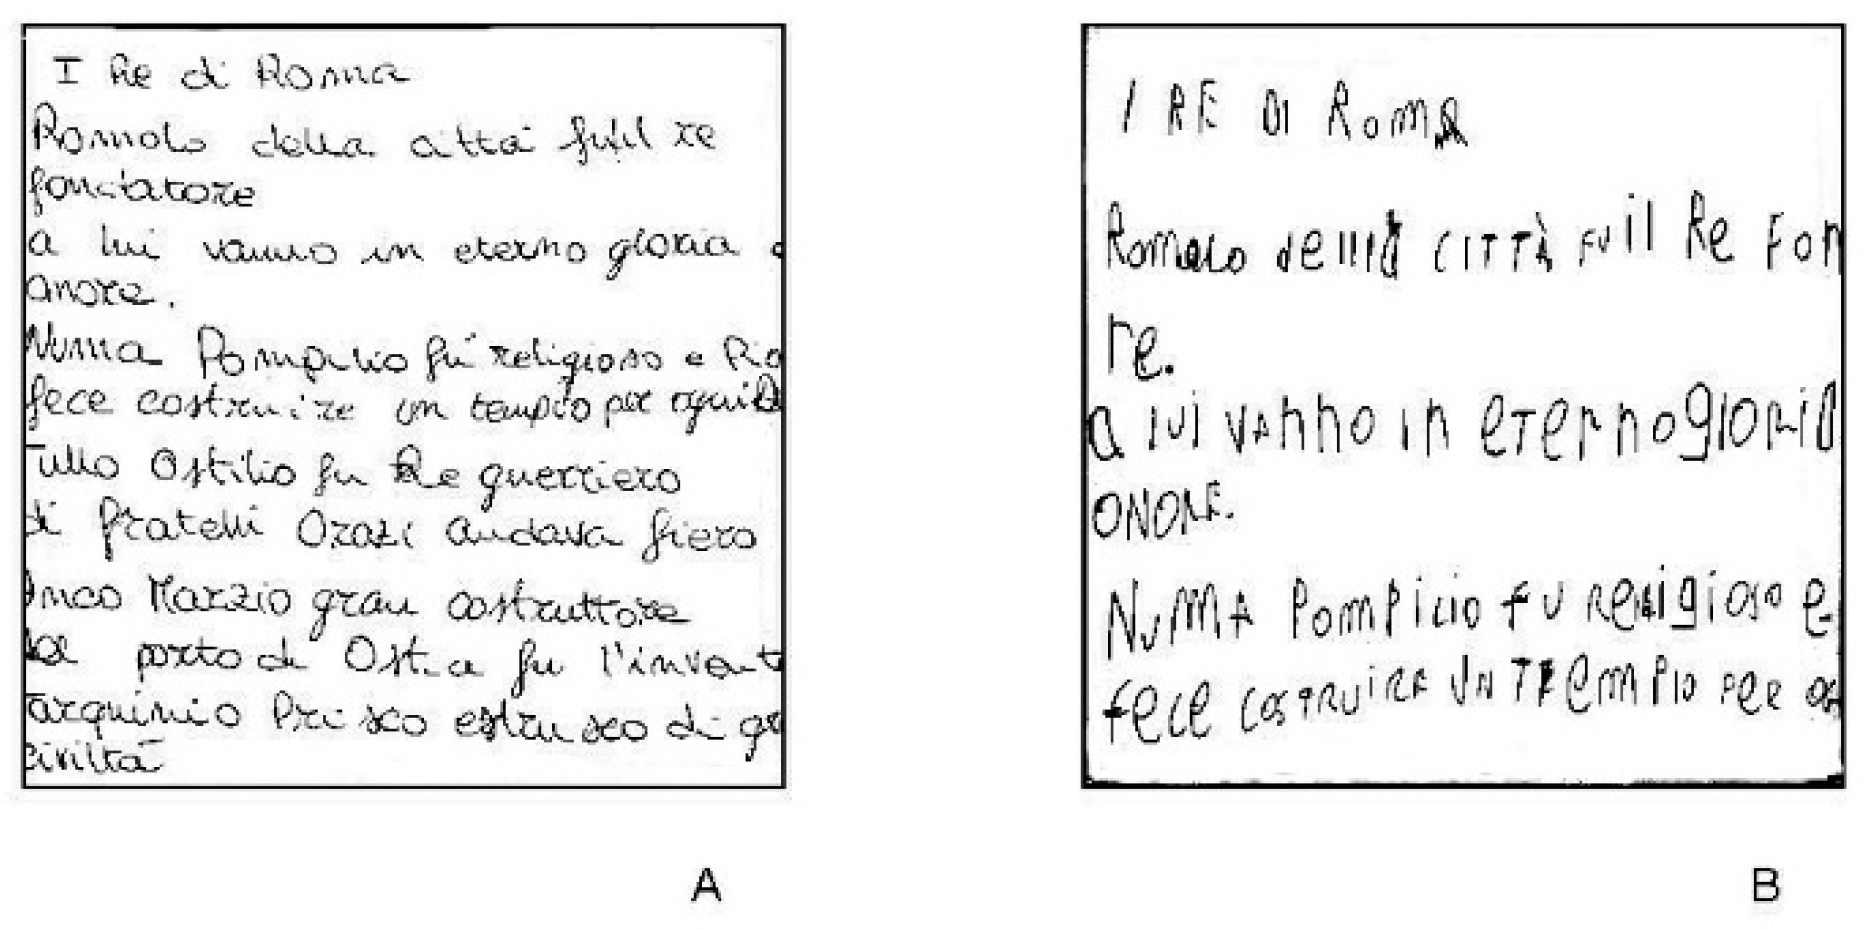 I Re di Roma
Romolo della città fu il re
fondatore
a lui vanno in eterno gloria e
onore.
Numa Pompilio fu religioso e Pio
fece costruire un tempio per ogni D
Tullo Ostilio fu Re guerriero
di fratelli Orazi andava fiero
Anco Marzio gran costruttore
del porto di Ostia fu l'invent
Tarquinio Prisco estrusco di gr
civiltà
A
I RE DI RomA
Romolo dellla CITTÀ fu il Re Fon
re.
a lui vanno in eterno gloria
ONORE.
NuMA PomPilio fu religioso e
fece cosTRuiRE UN TEmPio PeR og
B